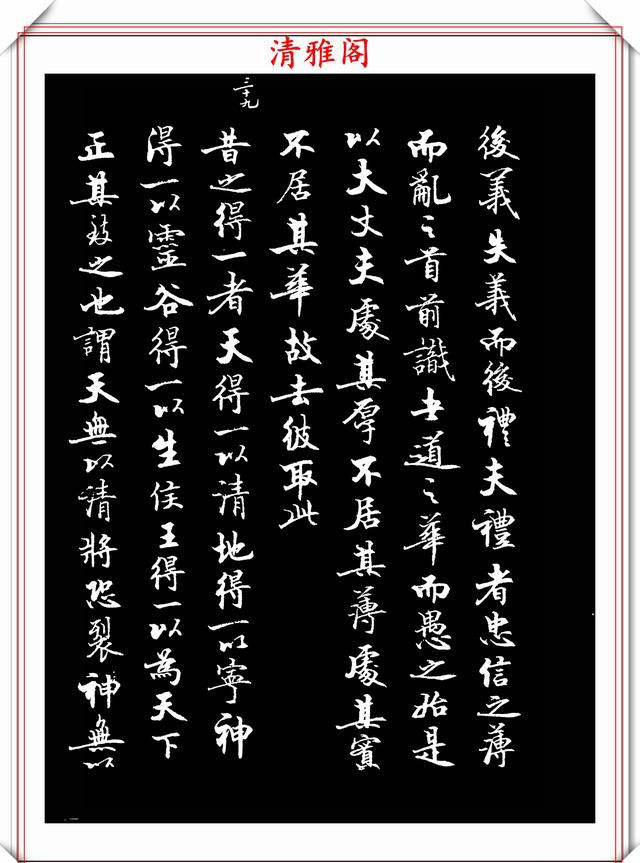 清雅阁
後義失義而後禮夫禮者忠信之薄
而亂之首前識者道之華而愚之始是
以大丈夫處其厚不居其薄處其實
不居其華故去彼取此
三十九
昔之得一者天得一以清地得一以寧神
得一以靈谷得一以生侯王得一以為天下
正其致之也謂天無以清將恐裂神無以